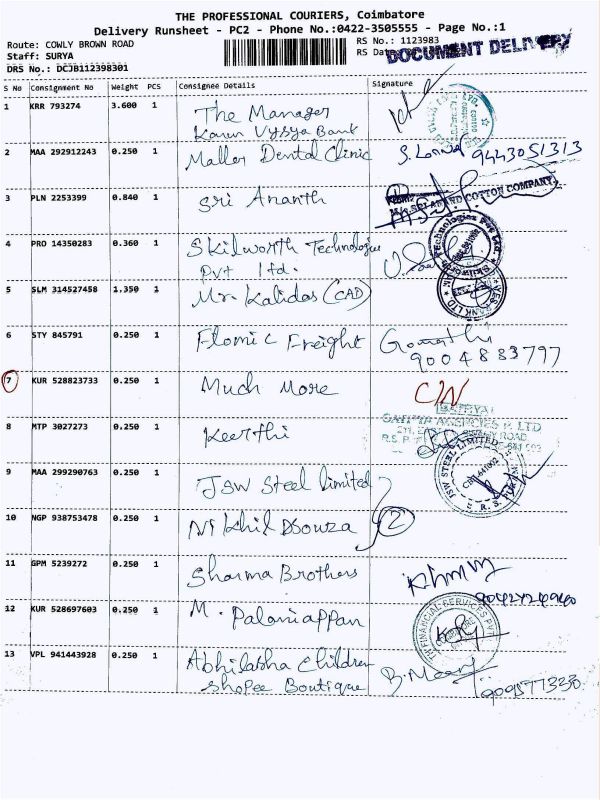 THE PROFESSIONAL COURIERS, Coimbatore
Delivery Runsheet - PC2 - Phone No.:0422-3505555 - Page No.:1
Route: COWLY BROWN ROAD RS No.: 1123983
Staff: SURYA RS Dat DOCUMENT DELIVERY
DRS No.: DCJB112398301
S No Consignment No Weight PCS Consignee Details Signature
1 KRR 793274 3.600 1 The Manager
Karur Vysya Bank
2 MAA 292912243 0.250 1 Mallar Dental Clinic 9443051313
3 PLN 2253399 0.840 1 Sri Ananth
M/s. SRI ANAND COTTON COMPANY
4 PRO 14350283 0.360 1 Skilworth Technologies
Pvt Ltd.
5 SLM 314527458 1.350 1 Mr. Kalidas (CAD)
YES BANK LTD
6 STY 845791 0.250 1 Flomic Freight Gomathi
9004883797
7 KUR 528823733 0.250 1 Much More C/N
8 MTP 3027273 0.250 1 Keerthi
9 MAA 299290763 0.250 1 JSW Steel limited
JSW STEEL LIMITED
10 NGP 938753478 0.250 1 Nikhil Dsouza 2
11 GPM 5239272 0.250 1 Sharma Brothers
12 KUR 528697603 0.250 1 M. Palaniappan
FINANCIAL SERVICES PVT
13 VPL 941443928 0.250 1 Abhilasha Children
Shopee Boutique